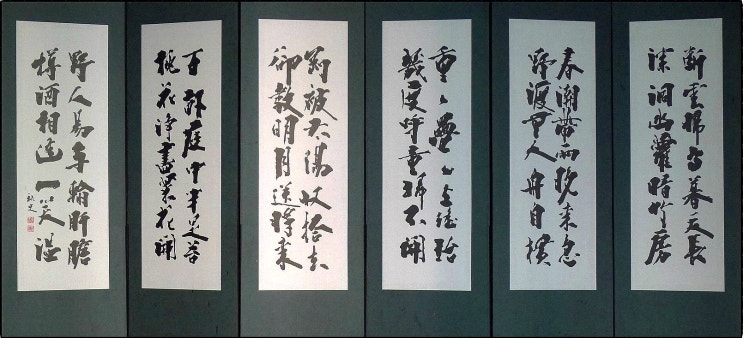 斷雲歸鳥暮天長
深洞幽蘿暗竹房
春潮帶雨晚來急
野渡無人舟自橫
重々疊々上瑤臺
幾度呼童掃不開
剛被太陽收拾去
卻敎明月送將來
百畝庭中半是苔
桃花淨盡菜花開
野人易與輸肝膽
樽酒相逢一笑溫